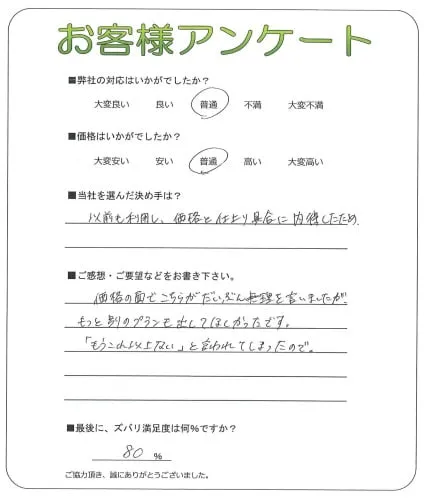 お客様アンケート
■弊社の対応はいかがでしたか?
大変良い 良い 普通 不満 大変不満
■価格はいかがでしたか?
大変安い 安い 普通 高い 大変高い
■当社を選んだ決め手は?
以前も利用し、価格と仕上り具合に納得したため
■ご感想・ご要望などをお書き下さい。
価格の面でこちらがだいぶん無理を言いましたが
もっと別のプランも出してほしかったです。
「もうこれ以上ない」と言われてしまったので。
■最後に、ズバリ満足度は何%ですか?
80 %
ご協力頂き、誠にありがとうございました。